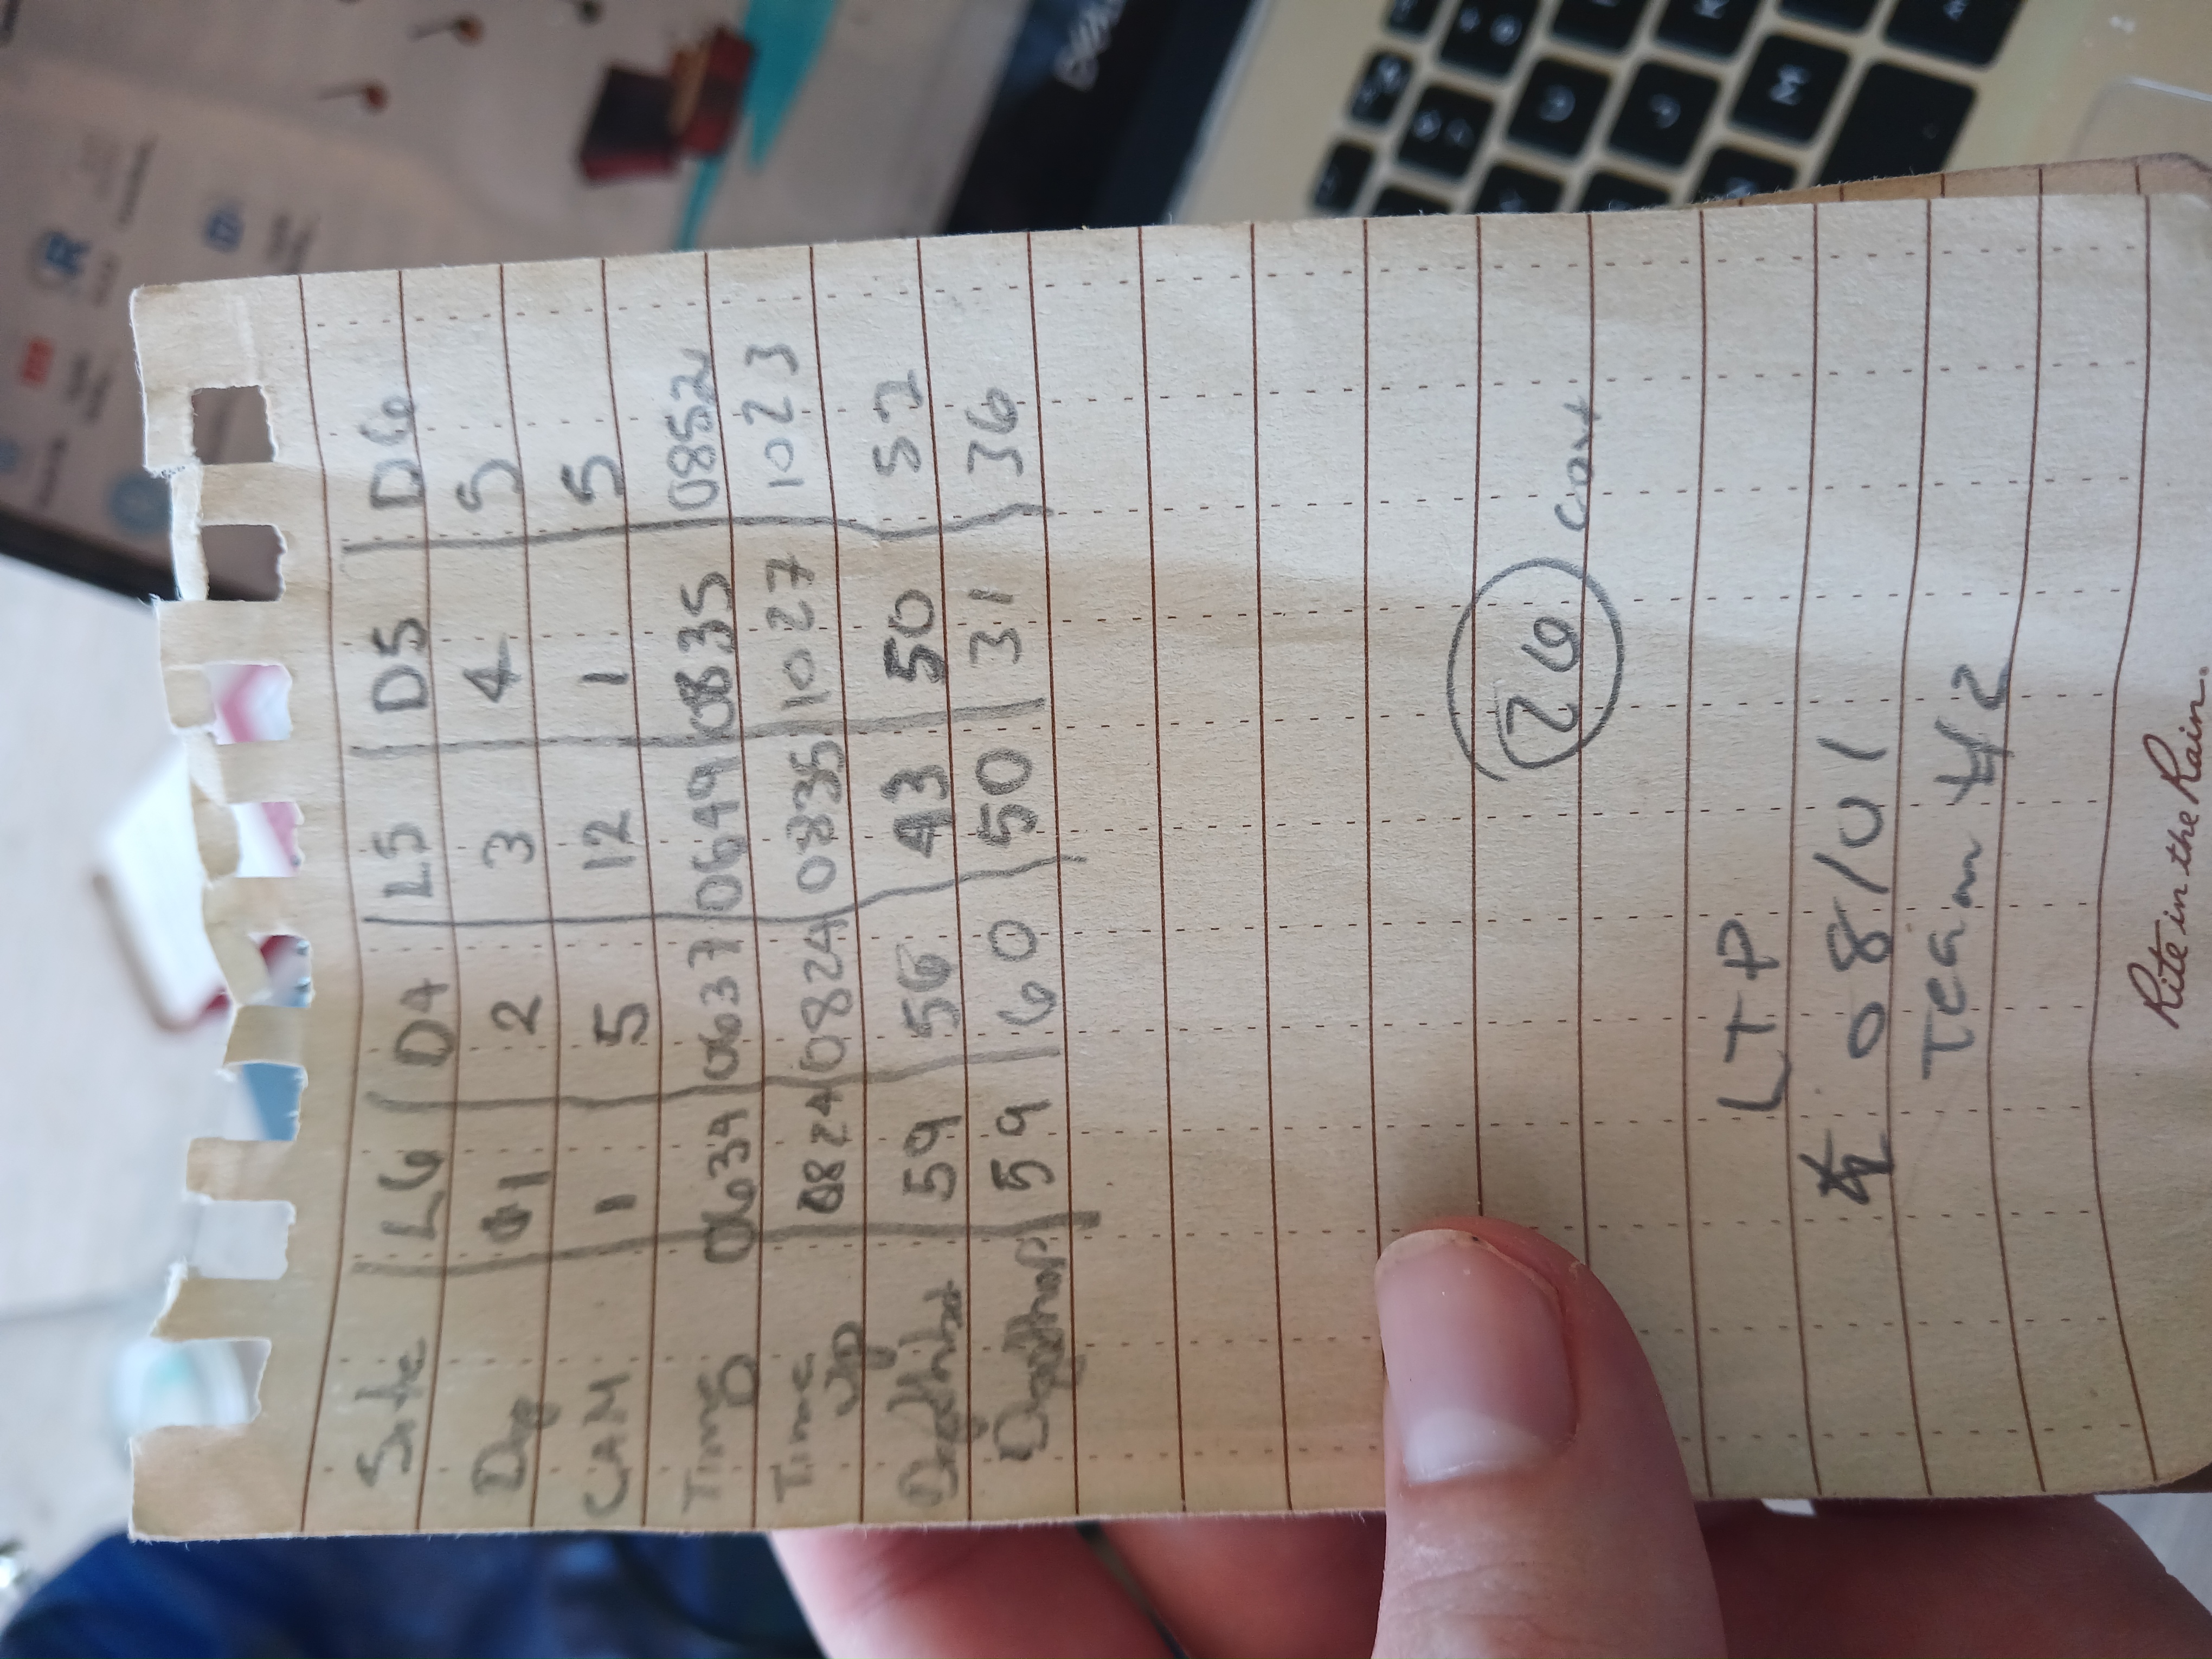 Site L6 D4 L5 D5 D6
Dep 1 2 3 4 5
CAM 1 5 12 1 5
Time D 0634 0637 0649 0835 0852
Time Up 0824 0824 0835 1027 1023
59 56 43 50 52
59 60 50 31 36
26
LTP
08/01
Team #2
Rite in the Rain.